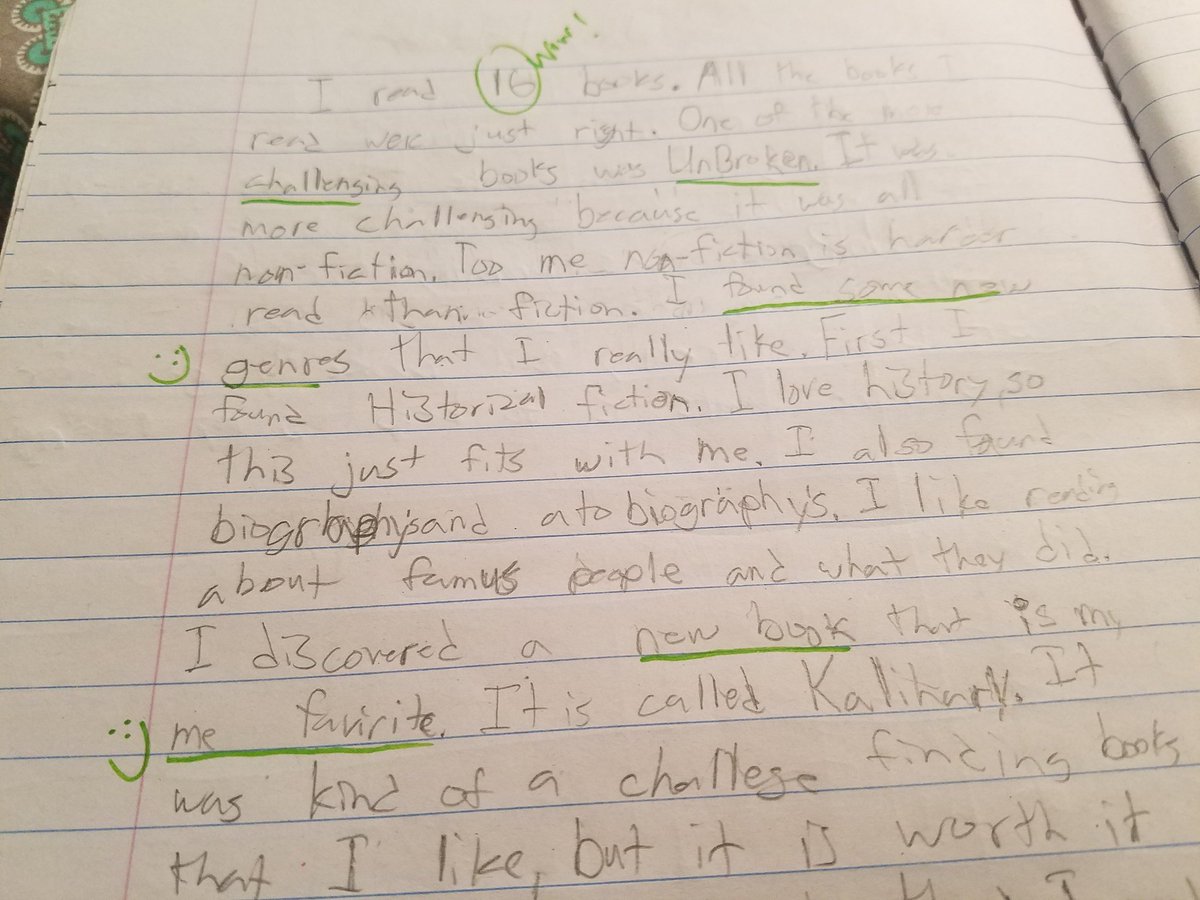 Wow!
I read 16 books. All the books I
read were just right. One of the more
challenging books was UnBroken. It was
more challenging because it was all
non-fiction. Too me non-fiction is harder
read than fiction. I found some new
genres that I really like. First I
found Historizal fiction. I love history, so
this just fits with me. I also found
biographysand atobiography's. I like reading
about famus people and what they did.
I discovered a new book that is my
me favirite. It is called Kalihary. It
was kind of a challege finding books
that I like, but it is worth it